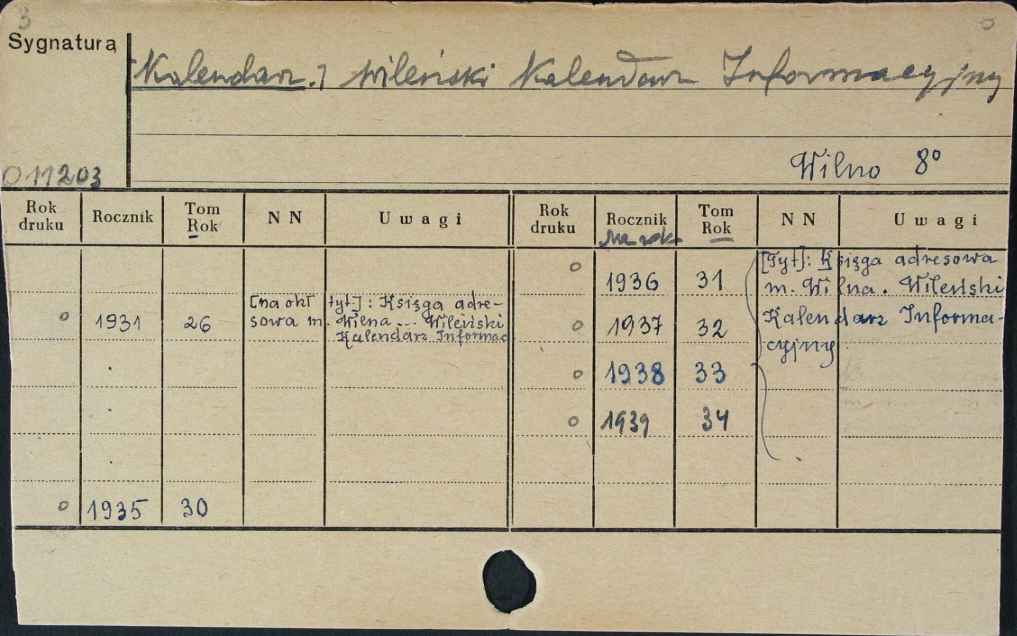 3
Sygnatura
[Kalendarz.] Wileński Kalendarz Informacyjny
Wilno 8°
O 11203
Rok druku Rocznik Tom Rok N N Uwagi Rok druku Rocznik Tom Rok N N Uwagi
Na rok
o 1931 26 [na okł tyt.]: Księga adre-
sowa m. Wilna ... Wileński
Kalendarz Informac
o 1935 30
o 1936 31 [Tyt]: Księga adresowa
m. Wilna. Wileński
o 1937 32 Kalendarz Informa-
cyjny
o 1938 33
o 1939 34